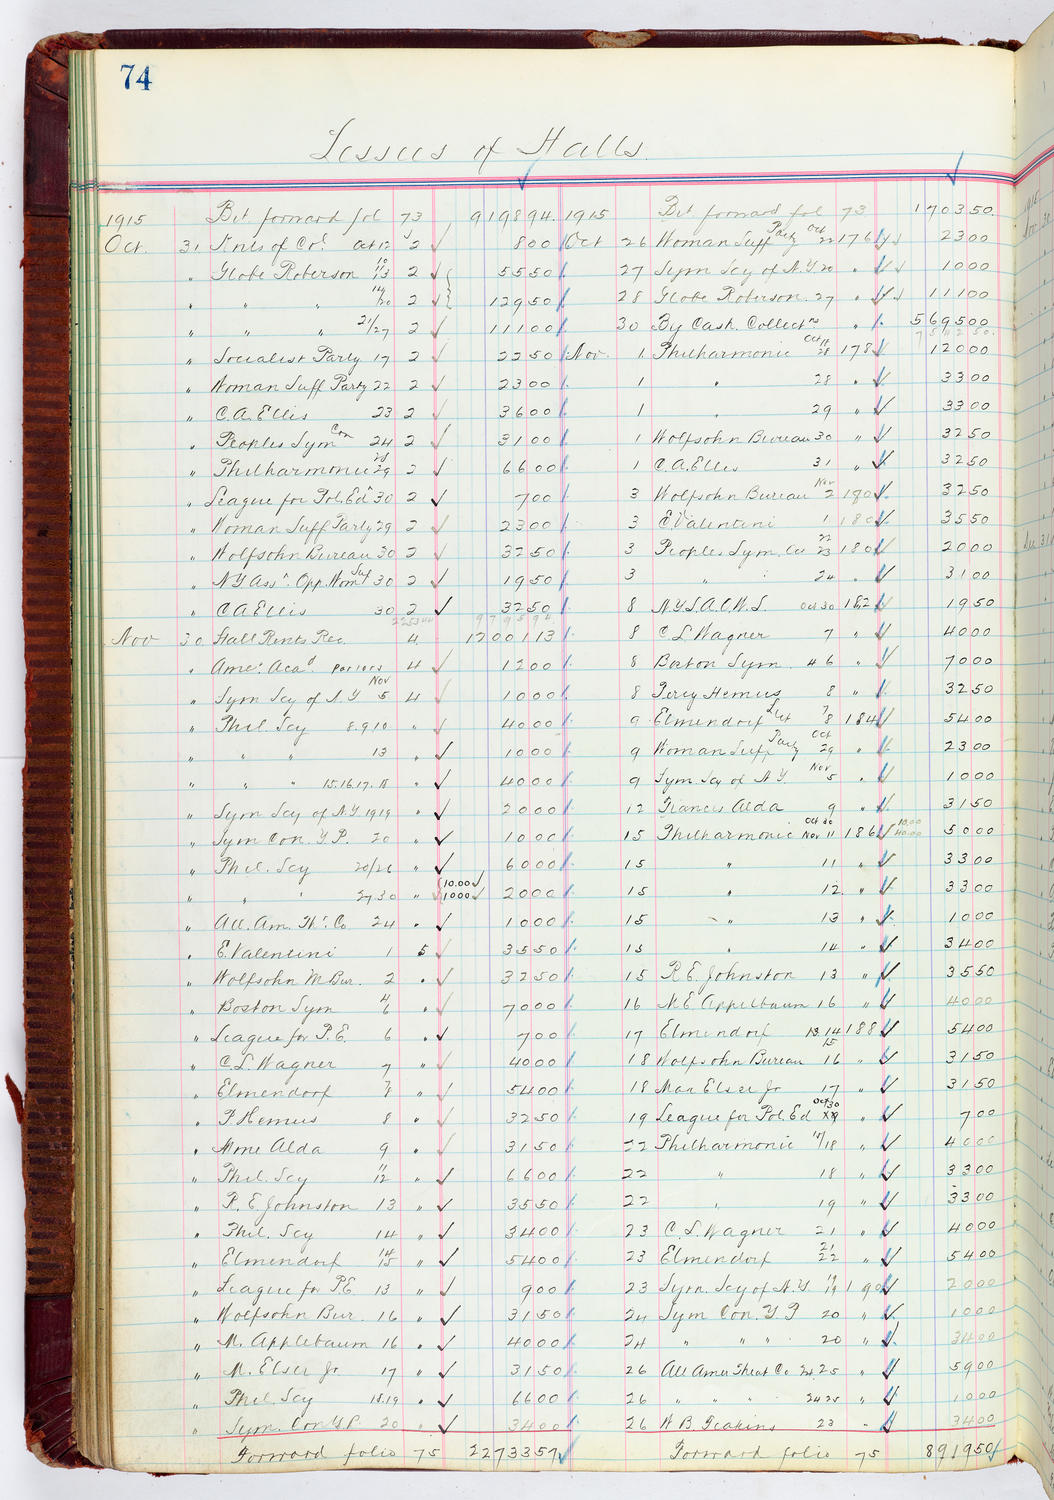 74
Lessees of Halls.
1915 Bet forward fol 73 919894. 1915 Bet forward fol 73 170350.
Oct. 31 Knts of Col. Oct 12 2 800 Oct 26 Woman Suff Party Oct 22 176 2300
" Globe Roberson 12/13 2 5550 27 Sym Scy of N.Y. 20 " 1000
" " " 14/20 2 12950 28 Globe Roberson. 27 " 11100
" " " 21/27 2 11100 30 By Cash. Collectns " 569500
" Socialist Party 17 2 2250 Nov. 1 Philharmonic Oct 28 178 12000
" Woman Suff Party 22 2 2300 1 " 28 " 3300
" C. A. Ellis 23 2 3600 1 " 29 " 3300
" Peoples Sym Con 24 2 3100 1 Wolfsohn Bureau 30 " 3250
" Philharmonic 28/29 2 6600 1 C. A. Ellis 31 " 3250
" League for Pol. Edn 30 2 700 3 Wolfsohn Bureau Nov 2 180 3250
" Woman Suff Party 29 2 2300 3 E. Valentini 1 180 3550
" Wolfsohn Bureau 30 2 3250 3 Peoples Sym. Co 22/23 180 2000
" N Y Assn. Opp. Wom Suf 30 2 1950 3 " " 24 " 3100
" C A Ellis 30 2 3250 8 N.Y.S.A.O.W.S. Oct 30 182 1950
979594
Nov 30 Hall Rents Rec 4 1200113 8 C L Wagner 7 " 4000
" Amer. Acad. Parlors 4 1200 8 Boston Sym. 4 6 " 7000
" Sym Scy of N.Y Nov 5 4 1000 8 Percy Hemus 8 " 3250
" Phil Scy 8.9.10 " 4000 9 Elmendorf Lect 7/8 184 5400
" " " 13 " 1000 9 Woman Suff Party Oct 29 " 2300
" " " 15.16.17.18 " 4000 9 Sym Scy of N.Y. Nov 5 " 1000
" Sym Scy of N.Y. 19 19 " 2000 12 Frances Alda 9 " 3150
" Sym Con. Y.P. 20 " 1000 15 Philharmonic Oct 30 Nov 11 186 10.00 40.00 5000
" Phil. Scy 20/26 " 6000 15 " 11 " 3300
" " " 27.30 " 10.00 1000 2000 15 " 12. " 3300
" All. Am. Thr. Co 24 " 1000 15 " 13 " 1000
" E. Valentini 1 5 3550 15 " 14 " 3400
" Wolfsohn M. Bur. 2 " 3250 15 R. E. Johnston 13 " 3550
" Boston Sym 4/6 " 7000 16 M. E. Appelbaum 16 " 4000
" League for P.E. 6 " 700 17 Elmendorf 13.14 188 5400
" C. L. Wagner 7 " 4000 18 Wolfsohn Bureau 15 16 " 3150
" Elmendorf 7/8 " 5400 18 Max Elser Jr 17 " 3150
" P. Hemus 8 " 3250 19 League for Pol. Ed Oct 30 " 700
" Mme Alda 9 " 3150 22 Philharmonic 15/18 " 4000
" Phil. Scy 11/12 " 6600 22 " 18 " 3300
" R. E. Johnston 13 " 3550 22 " 19 " 3300
" Phil. Scy 14 " 3400 23 C. L. Wagner 21 " 4000
" Elmendorf 14/15 " 5400 23 Elmendorf 21/22 " 5400
" League for P.E. 13 " 900 23 Sym. Scy of N.Y. 19 190 2000
" Wolfsohn Bur. 16 " 3150 24 Sym Con. Y P 20 " 1000
" M. Applebaum 16 " 4000 24 " " " 20 " 3400
" M. Elser Jr. 17 " 3150 26 All Amer Theat Co 24.25 " 5900
" Phil. Scy 18.19 " 6600 26 " " " 24 25 " 1000
" Sym. Con. Y.P. 20 " 3400 26 W. B. Feakins 23 " 3400
Forward folio 75 2273357 Forward folio 75 891950